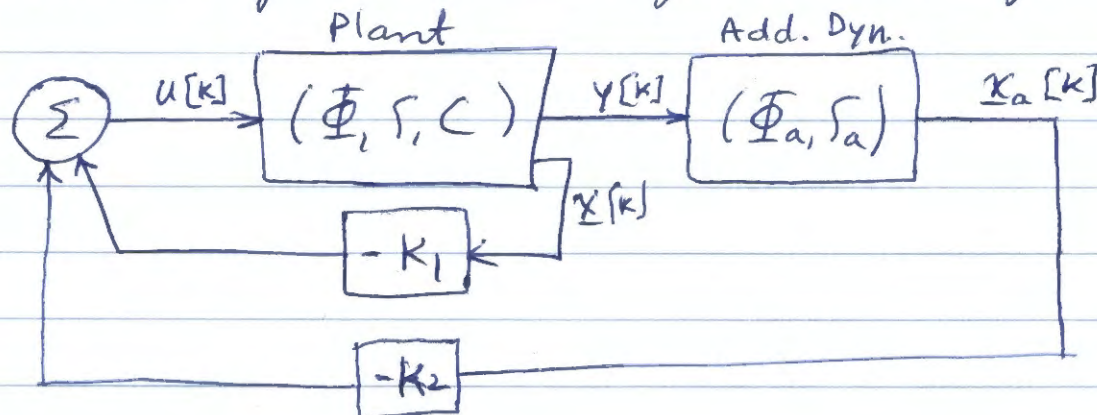 Plant Add. Dyn.
Σ u[k] (Φ, Γ, C) y[k] (Φa, Γa) x̲a[k]
x̲[k]
-K1
-K2